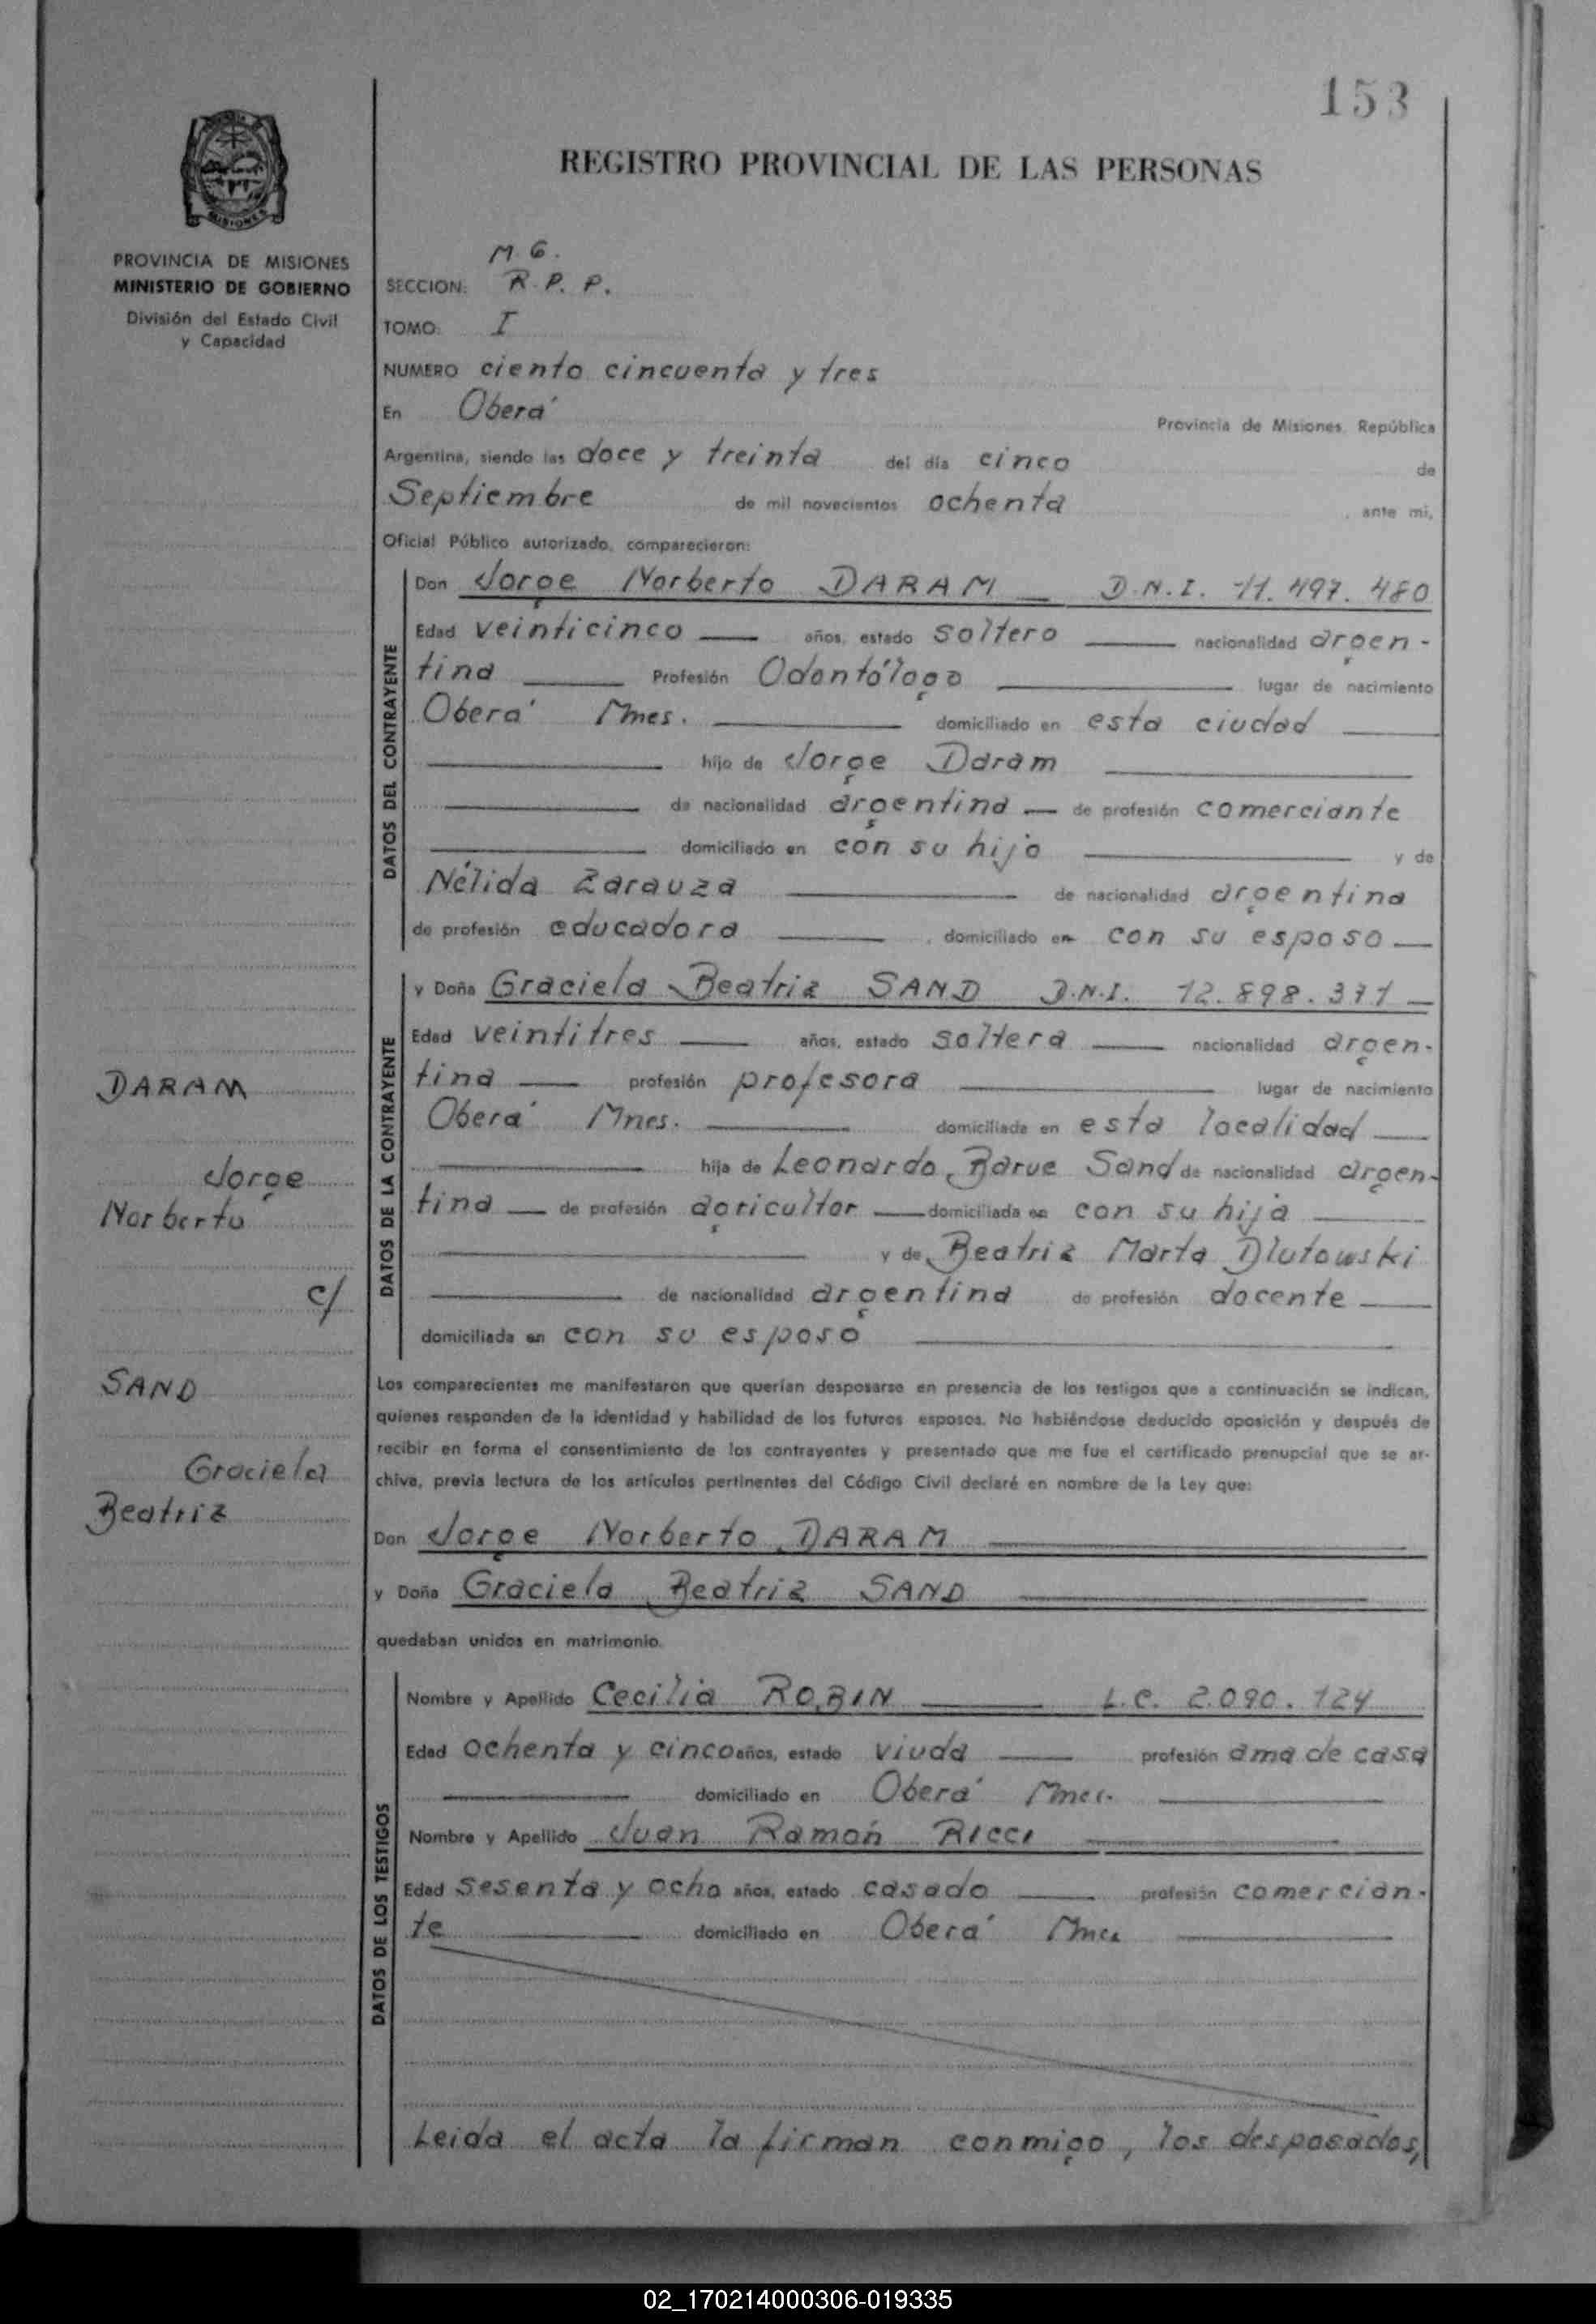 153
REGISTRO PROVINCIAL DE LAS PERSONAS
MISIONES
PROVINCIA DE MISIONES
MINISTERIO DE GOBIERNO
División del Estado Civil
y Capacidad
M. G.
SECCION: R. P. P.
TOMO: I
NUMERO ciento cincuenta y tres
En Oberá Provincia de Misiones, República
Argentina, siendo las doce y treinta del día cinco de
Septiembre de mil novecientos ochenta , ante mi,
Oficial Público autorizado, comparecieron:
DATOS DEL CONTRAYENTE
Don Jorge Norberto DARAM D.N.I. 11.497.480
Edad veinticinco años, estado soltero nacionalidad argen-
tina Profesión Odontólogo lugar de nacimiento
Oberá Mnes. domiciliado en esta ciudad
hijo de Jorge Daram
de nacionalidad argentina de profesión comerciante
domiciliado en con su hijo y de
Nélida Zarauza de nacionalidad argentina
de profesión educadora , domiciliado en con su esposo
DATOS DE LA CONTRAYENTE
y Doña Graciela Beatriz SAND D.N.I. 12.898.371
Edad veintitres años, estado soltera nacionalidad argen-
tina profesión profesora lugar de nacimiento
Oberá Mnes. domiciliada en esta localidad
hija de Leonardo Barue Sand de nacionalidad argen-
tina de profesión agricultor domiciliada en con su hija
y de Beatriz Marta Dlutowski
de nacionalidad argentina de profesión docente
domiciliada en con su esposo
DARAM
Jorge
Norberto
c/
SAND
Graciela
Beatriz
Los comparecientes me manifestaron que querían desposarse en presencia de los testigos que a continuación se indican,
quienes responden de la identidad y habilidad de los futuros esposos. No habiéndose deducido oposición y después de
recibir en forma el consentimiento de los contrayentes y presentado que me fue el certificado prenupcial que se ar-
chiva, previa lectura de los artículos pertinentes del Código Civil declaré en nombre de la Ley que:
Don Jorge Norberto DARAM
y Doña Graciela Beatriz SAND
quedaban unidos en matrimonio.
DATOS DE LOS TESTIGOS
Nombre y Apellido Cecilia ROBIN L.C. 2.090.124
Edad ochenta y cinco años, estado viuda profesión ama de casa
domiciliado en Oberá Mnes.
Nombre y Apellido Juan Ramón RICCI
Edad sesenta y ocho años, estado casado profesión comercian-
te domiciliado en Oberá Mnes
Leida el acta la firman conmigo, los desposados,
02_170214000306-019335